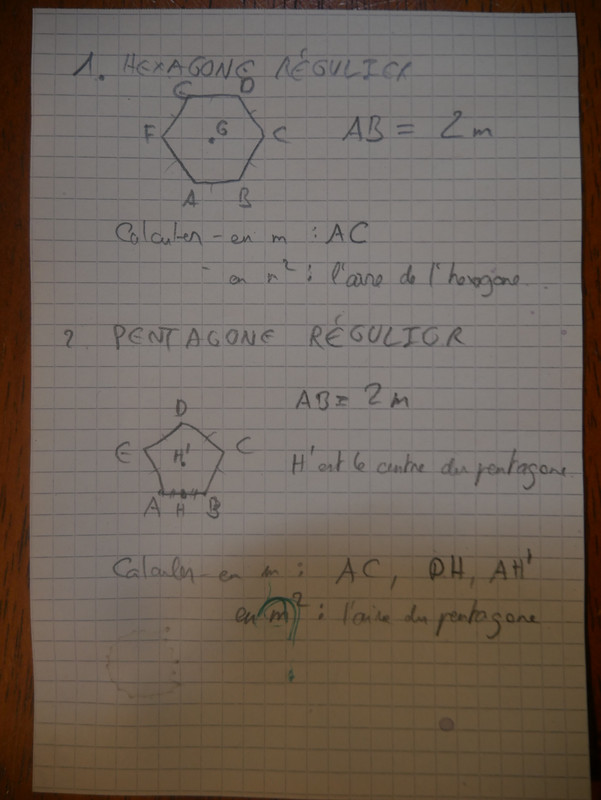 1. HEXAGONE RÉGULIER
E D
F G C
A B
AB = 2 m
Calculer - en m : AC
- en m² : l'aire de l'hexagone.
2 PENTAGONE RÉGULIER
AB = 2 m
D
E H' C
A H B
H' est le centre du pentagone.
Calculer - en m : AC, DH, AH'
en m² : l'aire du pentagone